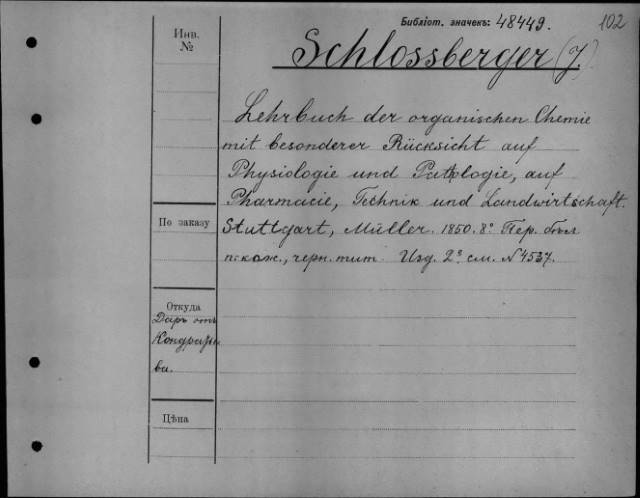 Библіот. значекъ: 48449. 102
Инв. №
Schlossberger (J.)
Lehrbuch der organischen Chemie
mit besonderer Rücksicht auf
Physiologie und Pathologie, auf
Pharmacie, Technik und Landwirtschaft.
По заказу
Stuttgart, Müller. 1850. 8° Пер.
кож., черн. тит. Изд. 2е см. № 4537.
Откуда
Даръ отъ
Кондратье
ва.
Цѣна